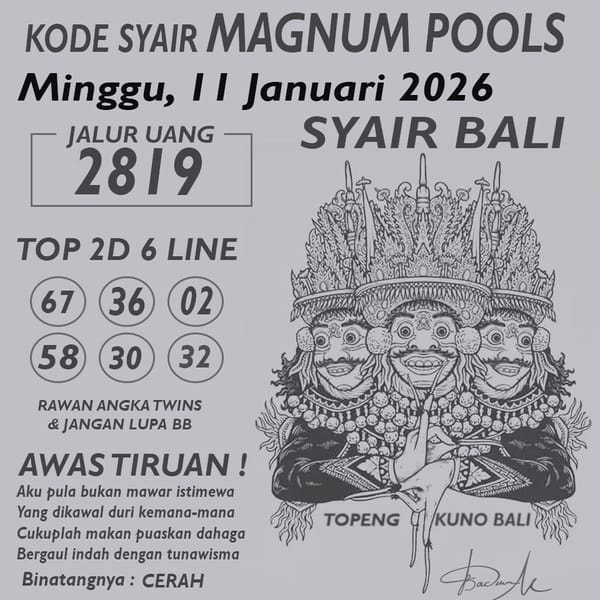 KODE SYAIR MAGNUM POOLS
Minggu, 11 Januari 2026
JALUR UANG
2819
SYAIR BALI
TOP 2D 6 LINE
67 36 02
58 30 32
RAWAN ANGKA TWINS
& JANGAN LUPA BB
AWAS TIRUAN !
Aku pula bukan mawar istimewa
Yang dikawal duri kemana-mana
Cukuplah makan puaskan dahaga
Bergaul indah dengan tunawisma
Binatangnya : CERAH
TOPENG KUNO BALI